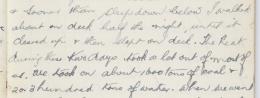 & sooner than sleep down below I walked
about on deck half the night, until it
cleared up & then slept on deck. The heat
during these two days took a lot out of most of
us. We took on about 1600 tons of coal &
20.3 hundred tons of water. When we went